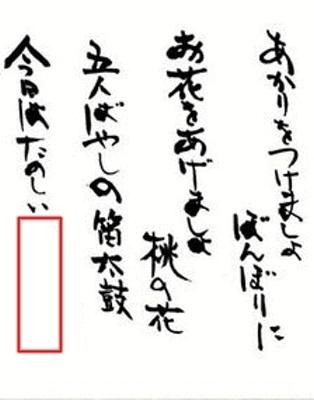 あかりをつけましょ
ぼんぼりに
お花をあげましょ
桃の花
五人ばやしの笛太鼓
今日はたのしい